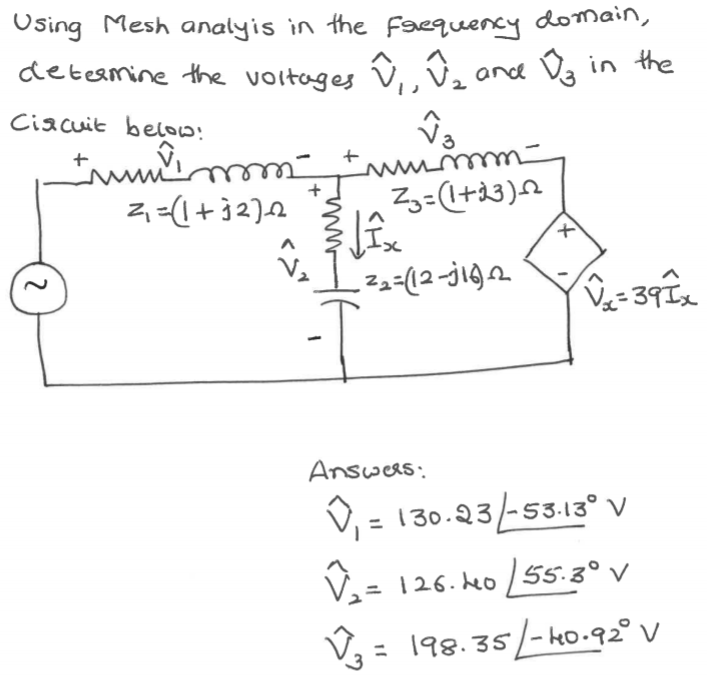 Using Mesh analyis in the frequency domain,
determine the voltages V̂₁, V̂₂ and V̂₃ in the
Circuit below:
V̂₃
+ V̂₁ - + -
Z₁=(1+j2)Ω + Z₃=(1+j3)Ω
Îx
+
V̂₂ Z₂=(12-j16)Ω - V̂x=39Îx
~
-
Answers:
V̂₁ = 130.23 ∠-53.13° V
V̂₂ = 126.40 ∠55.3° V
V̂₃ = 198.35 ∠-40.92° V